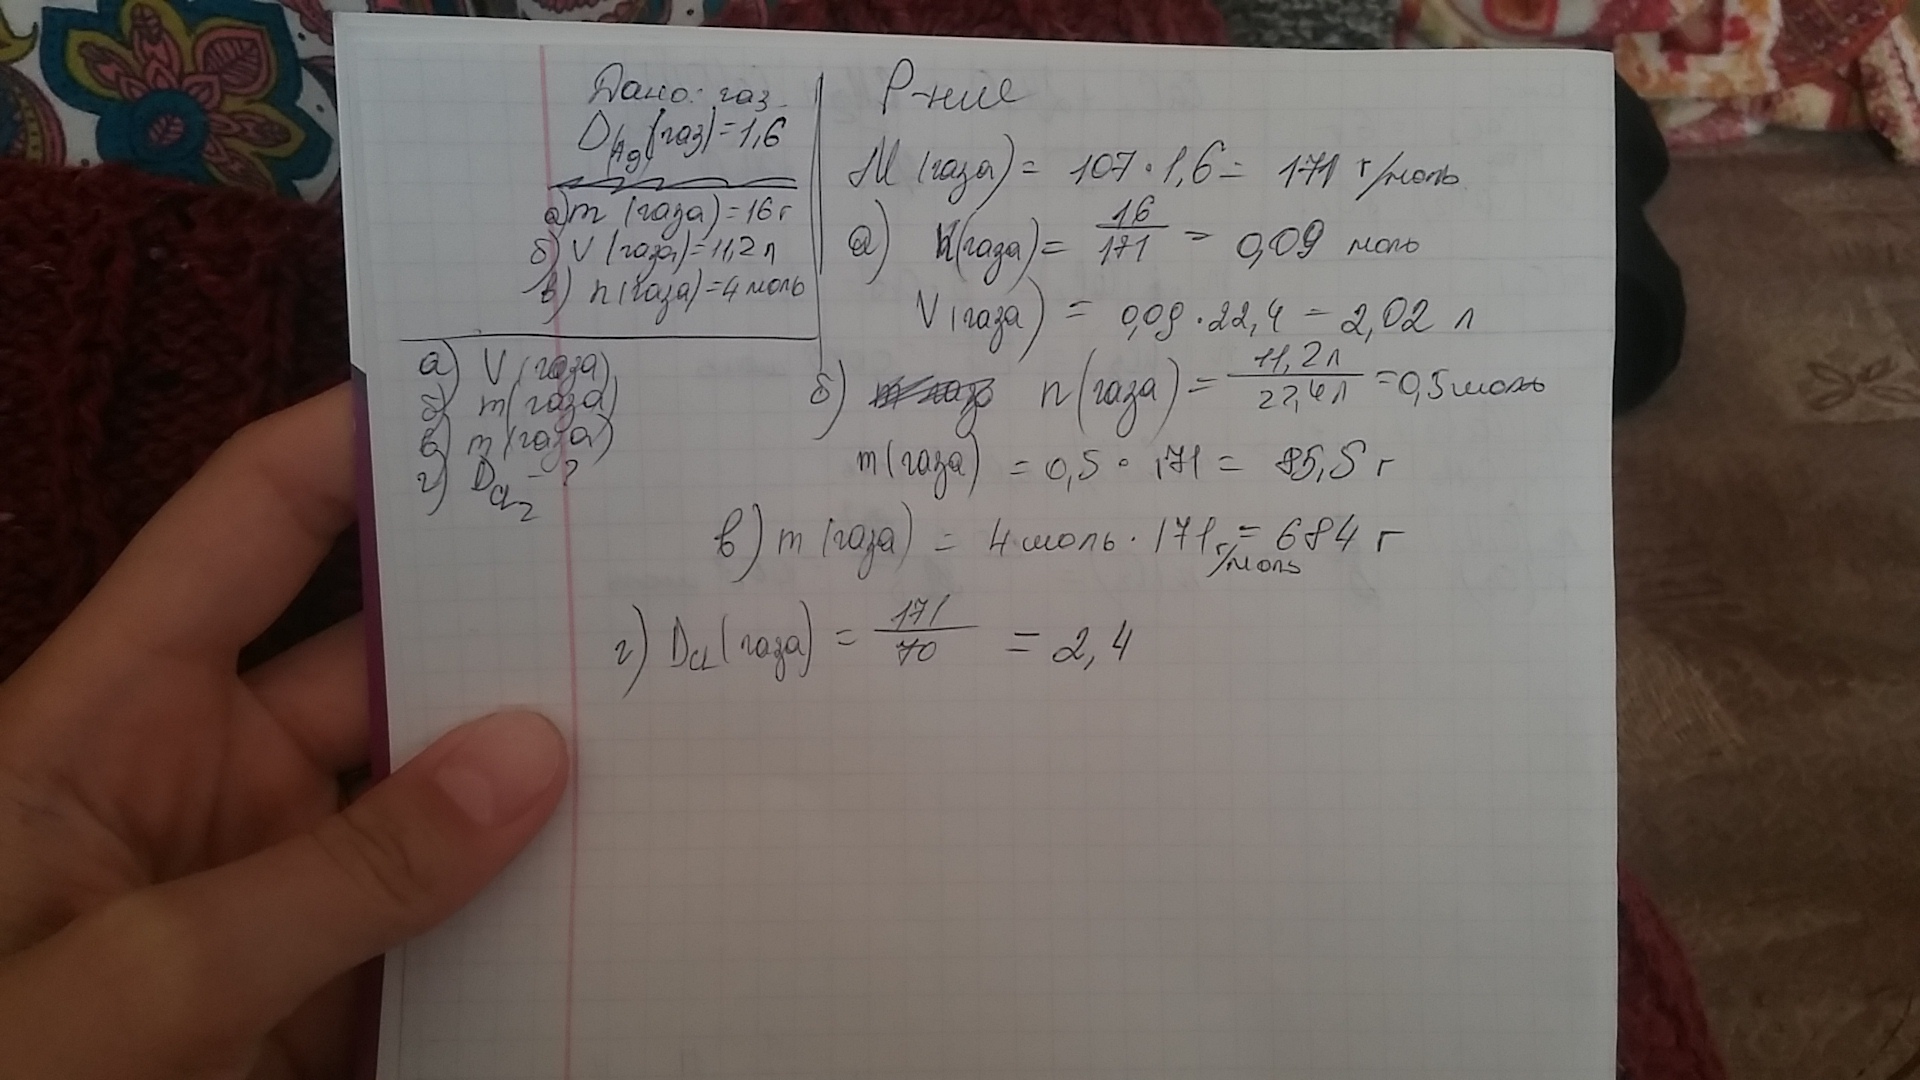 Дано: газ
D Ag (газ) = 1,6
а) m (газа) = 16 г
б) V (газа) = 11,2 л
в) n (газа) = 4 моль
а) V (газа)
б) m (газа)
в) m (газа)
г) D Cl2 - ?
Р-ние
M (газа) = 107 · 1,6 = 171 г/моль
а) n (газа) = 16/171 = 0,09 моль
V (газа) = 0,09 · 22,4 = 2,02 л
б) n (газа) = 11,2 л/22,4 л = 0,5 моль
m (газа) = 0,5 · 171 = 85,5 г
в) m (газа) = 4 моль · 171 г/моль = 684 г
г) D Cl (газа) = 171/70 = 2,4